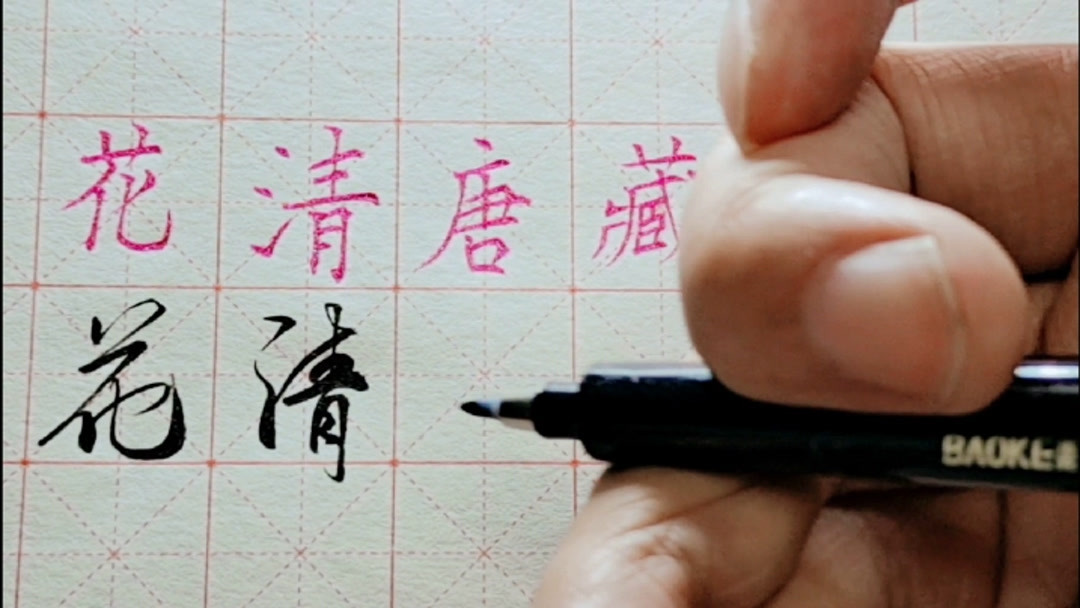 花清唐藏
花清
BAOKE